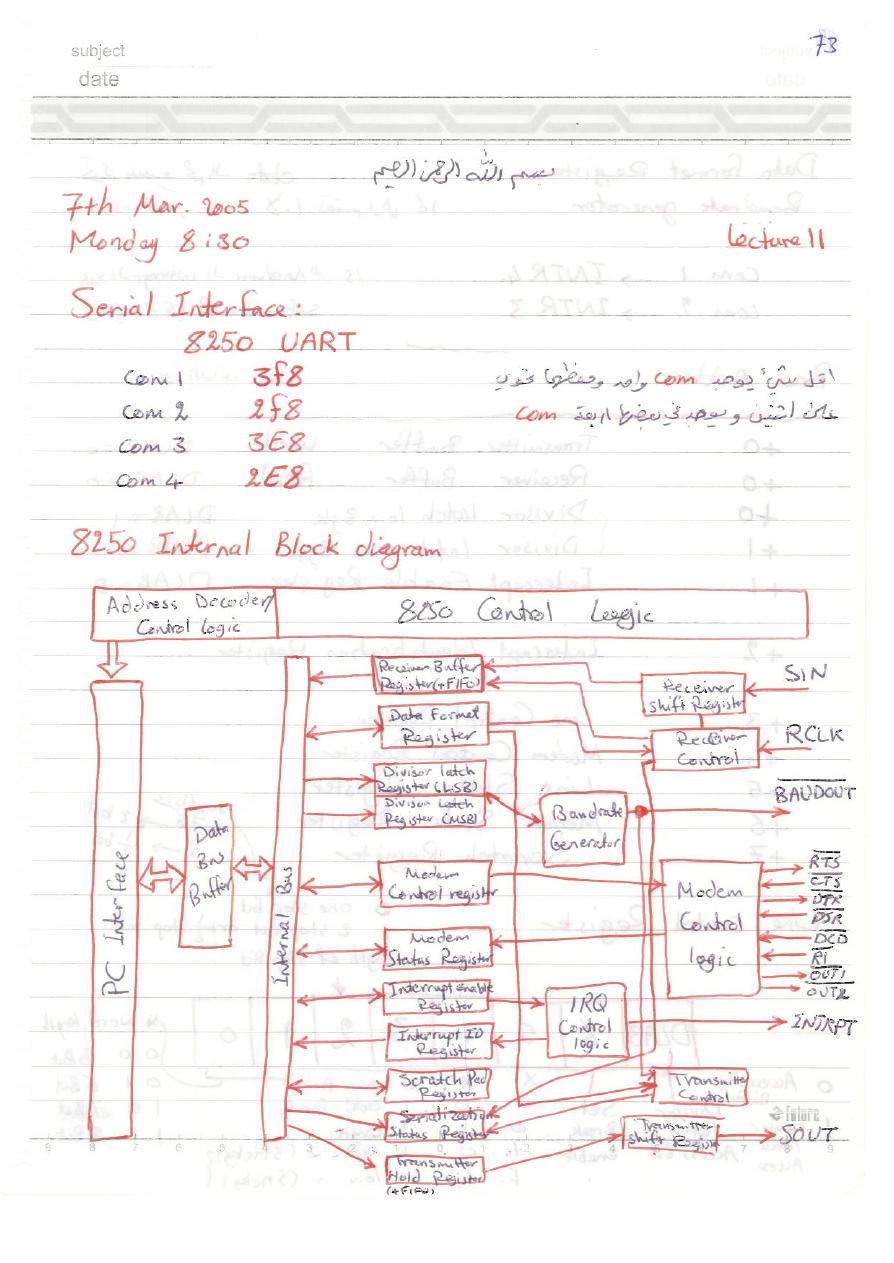 73
subject
date
بسم الله الرحمن الرحيم
7th Mar. 2005
Monday 8:30
Lecture 11
Serial Interface:
8250 UART
Com 1 3f8
Com 2 2f8
Com 3 3E8
Com 4 2E8
اقل شيء يوجد com واحد ومعظمها تحتوي
على اثنين ويوجد في بعضها اربعة com
8250 Internal Block diagram
Address Decoder/
Control logic
8250 Control Logic
PC Interface
Data
Bus
Buffer
Internal Bus
Receiver Buffer
Register (+FIFO)
Data Format
Register
Divisor latch
Register (LSB)
Divisor Latch
Register (MSB)
Modem
Control register
Modem
Status Register
Interrupt enable
Register
Interrupt ID
Register
Scratch Pad
Register
Serialization
Status Register
Transmitter
Hold Register
(+FIFO)
Receiver
Shift Register
Receiver
Control
Baudrate
Generator
Modem
Control
logic
IRQ
Control
logic
Transmitter
Control
Transmitter
Shift Register
SIN
RCLK
BAUDOUT
RTS
CTS
DTR
DSR
DCD
RI
OUT1
OUT2
INTRPT
SOUT
future
9 8 7 6 5 4 3 2 1 0 1 2 3 4 5 6 7 8 9